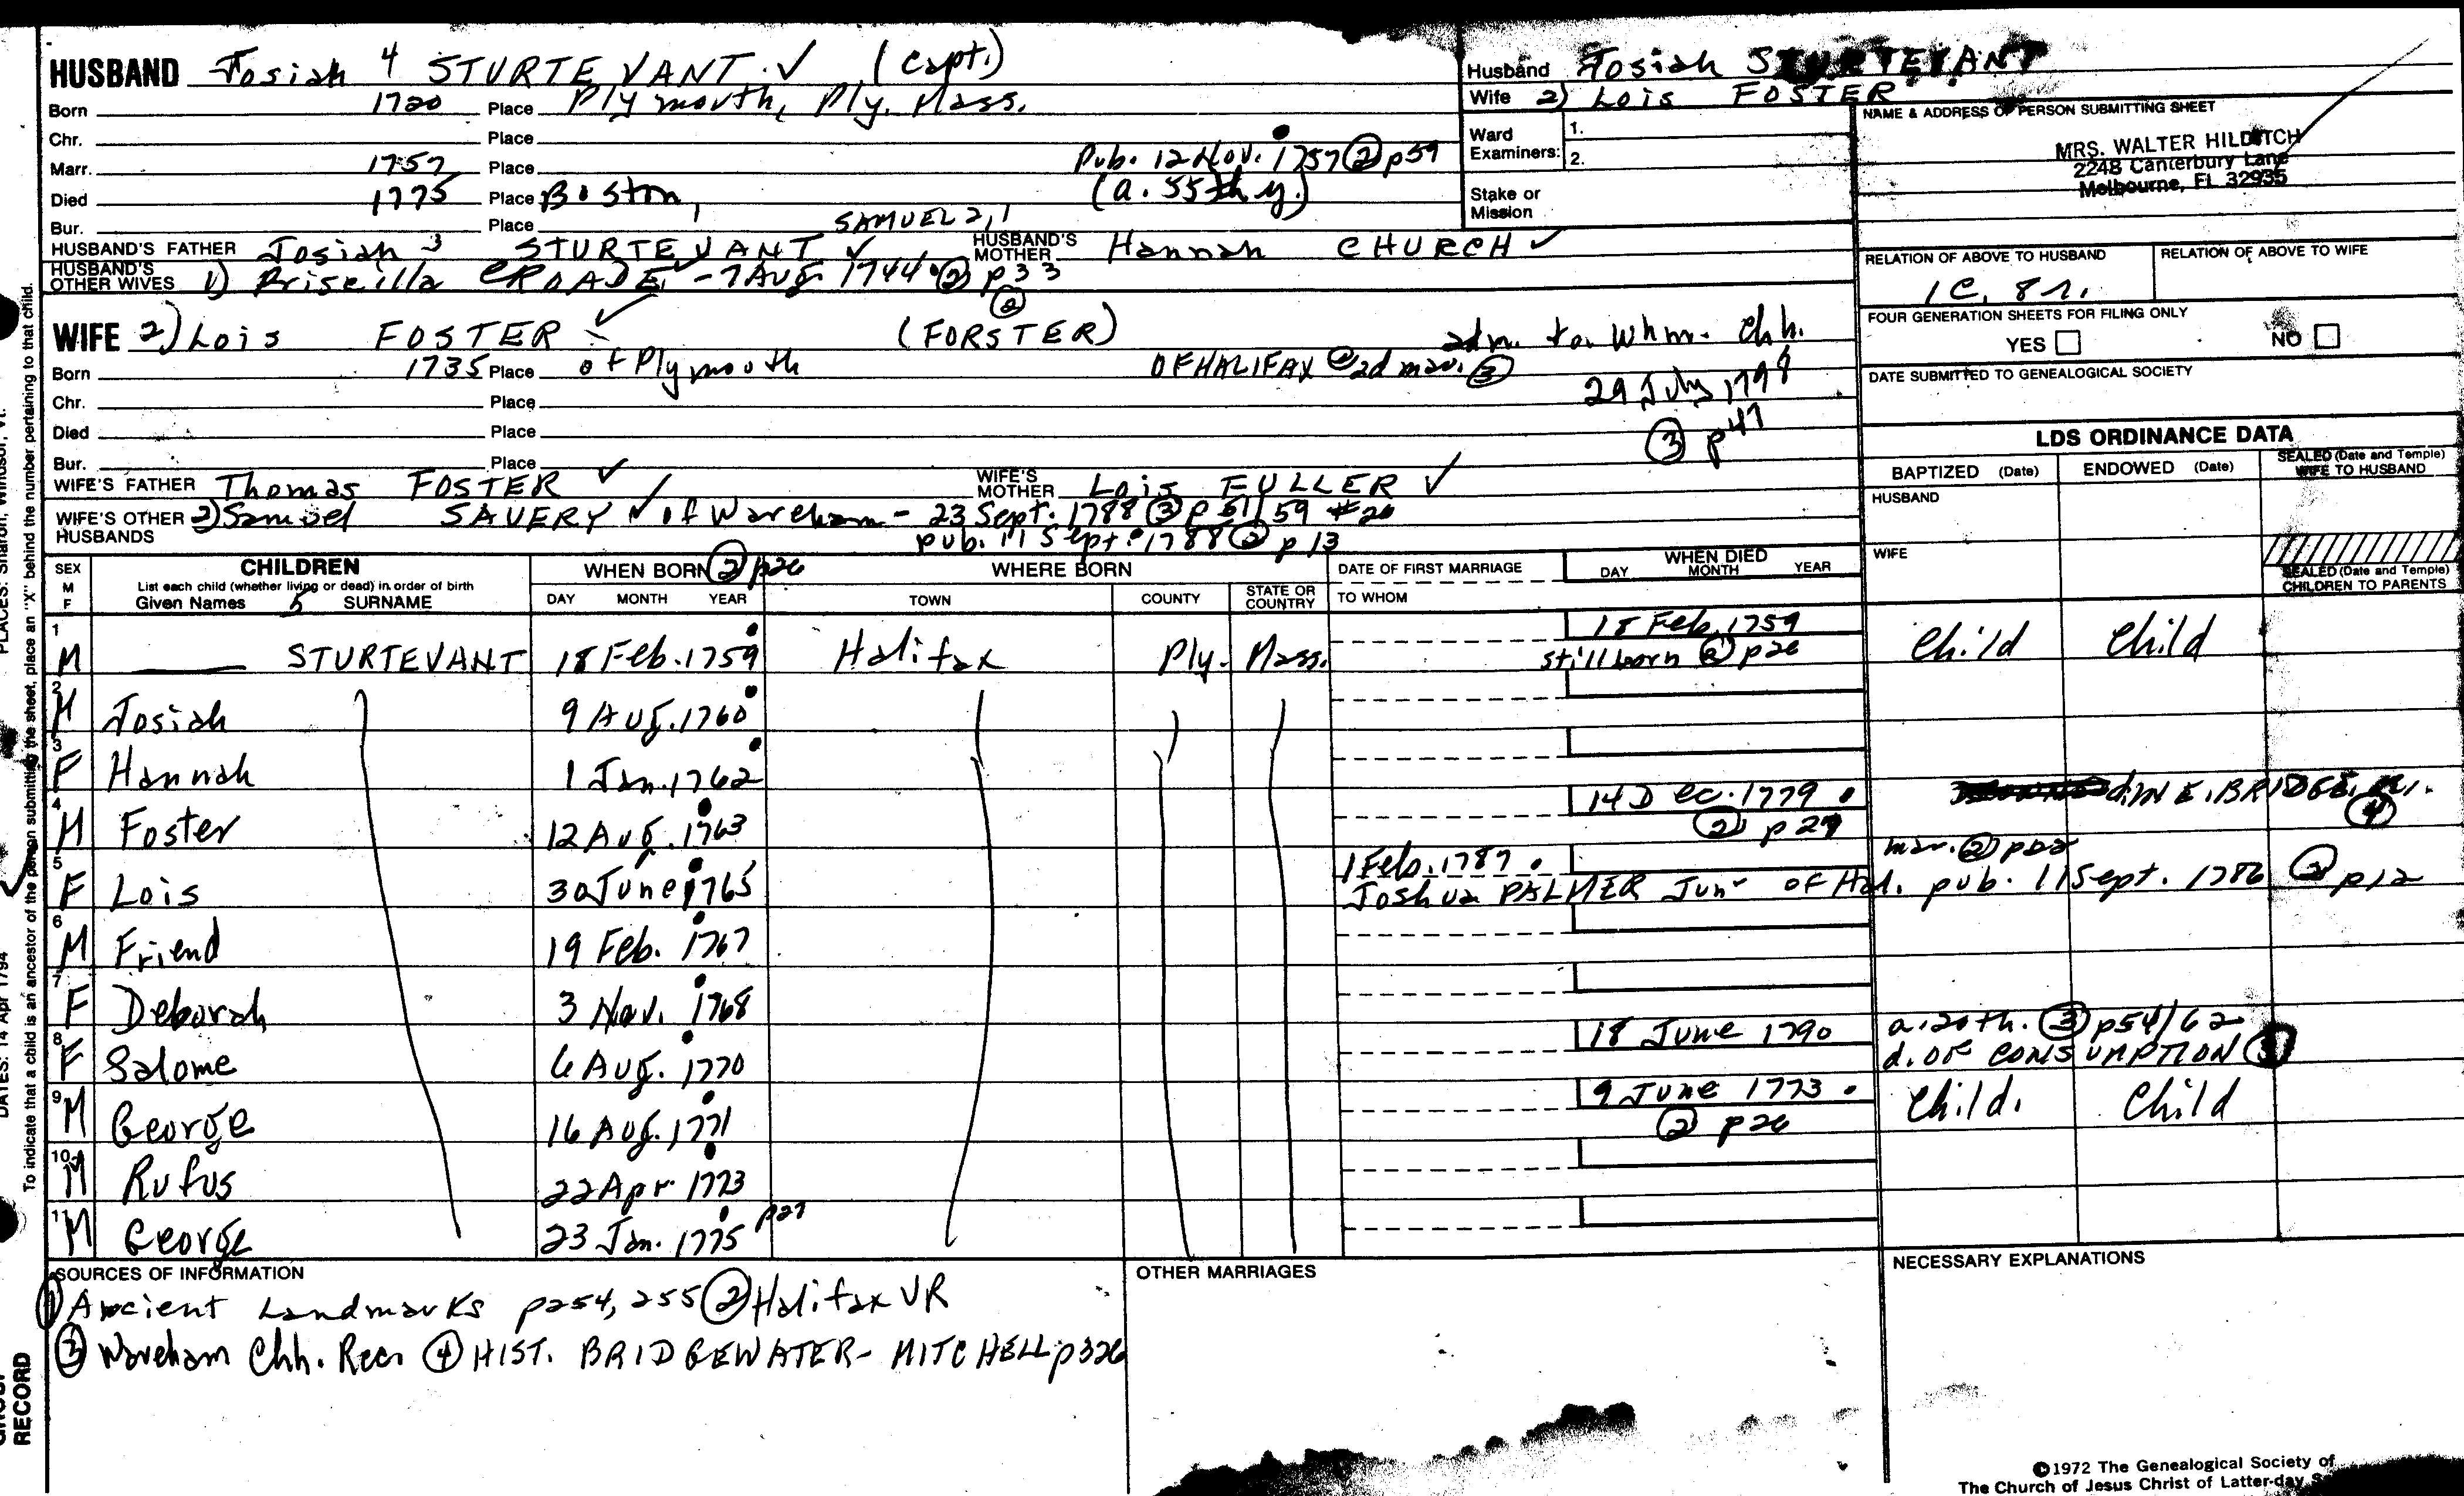 HUSBAND Josiah 4 STURTEVANT ✓ (Capt.)
Born 1720 Place Plymouth, Ply. Mass.
Chr. Place
Marr. 1757 Place Pub. 12 Nov. 1757 ② p59
Died 1775 Place Boston, (a. 55th y.)
Bur. Place
SAMUEL 2,1
HUSBAND'S FATHER Josiah 3 STURTEVANT ✓ HUSBAND'S MOTHER Hannah CHURCH ✓
HUSBAND'S OTHER WIVES 1) Priscilla CROADE ✓ - 7 AUG. 1744 ② p33
②
WIFE 2) Lois FOSTER ✓ (FORSTER) adm. to Whm. Chh.
Born 1735 Place of Plymouth OF HALIFAX @ 2d mar. ③
29 July 1798
Chr. Place
Died Place ③ p47
Bur. Place
WIFE'S FATHER Thomas FOSTER ✓ WIFE'S MOTHER Lois FULLER ✓
WIFE'S OTHER HUSBANDS 2) Samuel SAVERY ✓ of Wareham - 23 Sept. 1788 ③ p 51/59 #20
pub. 11 Sept. 1788 ② p13
Husband Josiah STURTEVANT
Wife 2) Lois FOSTER
Ward Examiners: 1.
2.
Stake or Mission
NAME & ADDRESS OF PERSON SUBMITTING SHEET
MRS. WALTER HILDITCH
2248 Canterbury Lane
Melbourne, FL 32935
RELATION OF ABOVE TO HUSBAND RELATION OF ABOVE TO WIFE
1C, 8r.
FOUR GENERATION SHEETS FOR FILING ONLY
YES □ NO □
DATE SUBMITTED TO GENEALOGICAL SOCIETY
LDS ORDINANCE DATA
BAPTIZED (Date) ENDOWED (Date) SEALED (Date and Temple) WIFE TO HUSBAND
HUSBAND
WIFE
SEALED (Date and Temple) CHILDREN TO PARENTS
SEX M F CHILDREN List each child (whether living or dead) in order of birth Given Names 5 SURNAME
WHEN BORN ② p26 DAY MONTH YEAR
WHERE BORN TOWN COUNTY STATE OR COUNTRY
DATE OF FIRST MARRIAGE TO WHOM
WHEN DIED DAY MONTH YEAR
1 M —— STURTEVANT 18 Feb. 1759 Halifax Ply. Mass. 18 Feb. 1759 Child Child
stillborn ② p26
2 M Josiah 9 Aug. 1760
3 F Hannah 1 Jan. 1762
4 M Foster 12 Aug. 1763 14 Dec. 1779 d. IN E. BRIDGE. ④
② p27
5 F Lois 30 June 1765 1 Feb. 1787 mar. ② p22
Joshua PALMER Junr OF Hal. pub. 11 Sept. 1786 ② p12
6 M Friend 19 Feb. 1767
7 F Deborah 3 Nov. 1768
8 F Salome 6 Aug. 1770 18 June 1790 a. 20th. ③ p54/62
d. OF CONSUMPTION ③
9 M George 16 Aug. 1771 9 June 1773 Child. Child
② p26
10 M Rufus 22 Apr. 1773
11 M George 23 Jan. 1775 p27
SOURCES OF INFORMATION
① Ancient Landmarks p254, 255 ② Halifax VR
③ Wareham Chh. Rec. ④ HIST. BRIDGEWATER - MITCHELL p326
OTHER MARRIAGES
NECESSARY EXPLANATIONS
©1972 The Genealogical Society of
The Church of Jesus Christ of Latter-day
To indicate that a child is an ancestor of the person submitting the sheet, place an "X" behind the number pertaining to that child.
PLACES: Sharon, Windsor, Vt.
DATES: 14 Apr 1794
RECORD